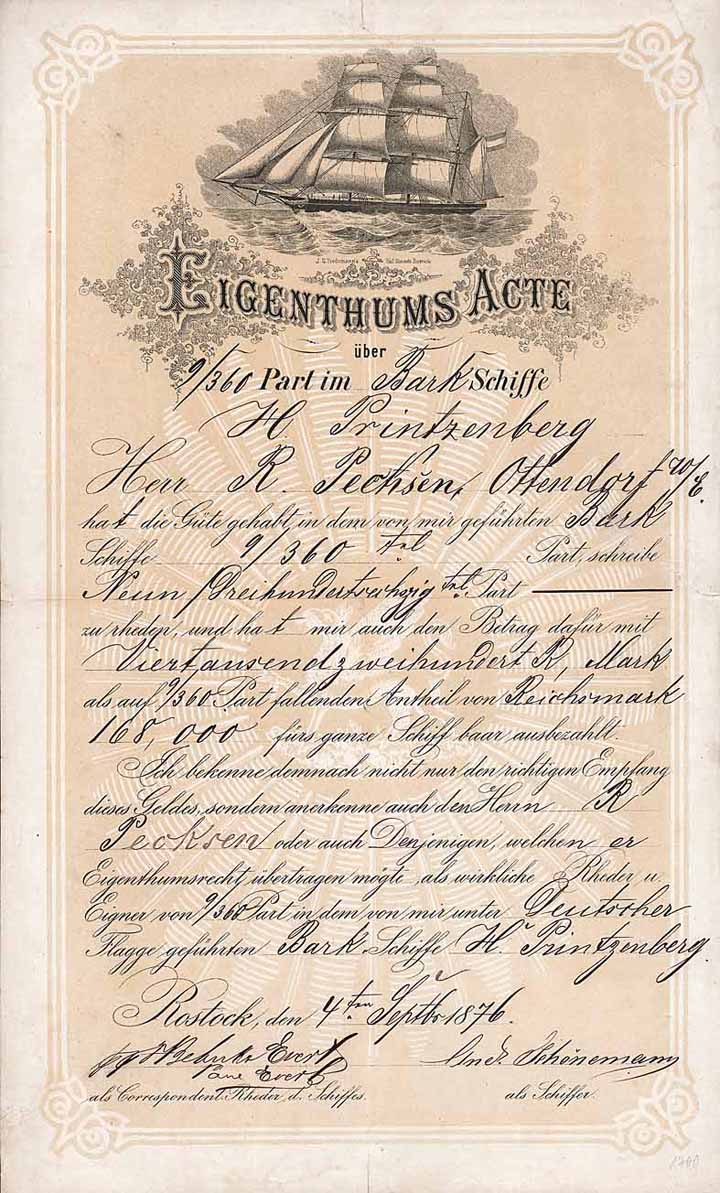 J. G. Tiedemann's
EIGENTHUMS ACTE
über
9/360 Part im Bark Schiffe
H. Printzenberg
Herr R. Pecksen, Ottendorf
hat die Güte gehabt, in dem von mir geführten Bark
Schiffe 9/360 tel Part, schreibe
Neun/Dreihundertsechzig tel. Part
zu rheden, und hat mir auch den Betrag dafür mit
Viertausendzweihundert R, Mark
als auf 9/360 Part fallenden Antheil von Reichsmark
168,000 fürs ganze Schiff baar ausbezahlt.
Ich bekenne demnach nicht nur den richtigen Empfang
dieses Geldes, sondern anerkenne auch den Herrn R
Pecksen oder auch Denjenigen, welchen er
Eigenthumsrecht übertragen mögte, als wirkliche Rheder u.
Eigner von 9/360 Part in dem von mir unter Deutscher
Flagge geführten Bark Schiffe H. Printzenberg.
Rostock, den 4ten Septbr 1876.
Evert Andr. Schönemann
Evert
als Correspondent-Rheder d. Schiffes. als Schiffer.